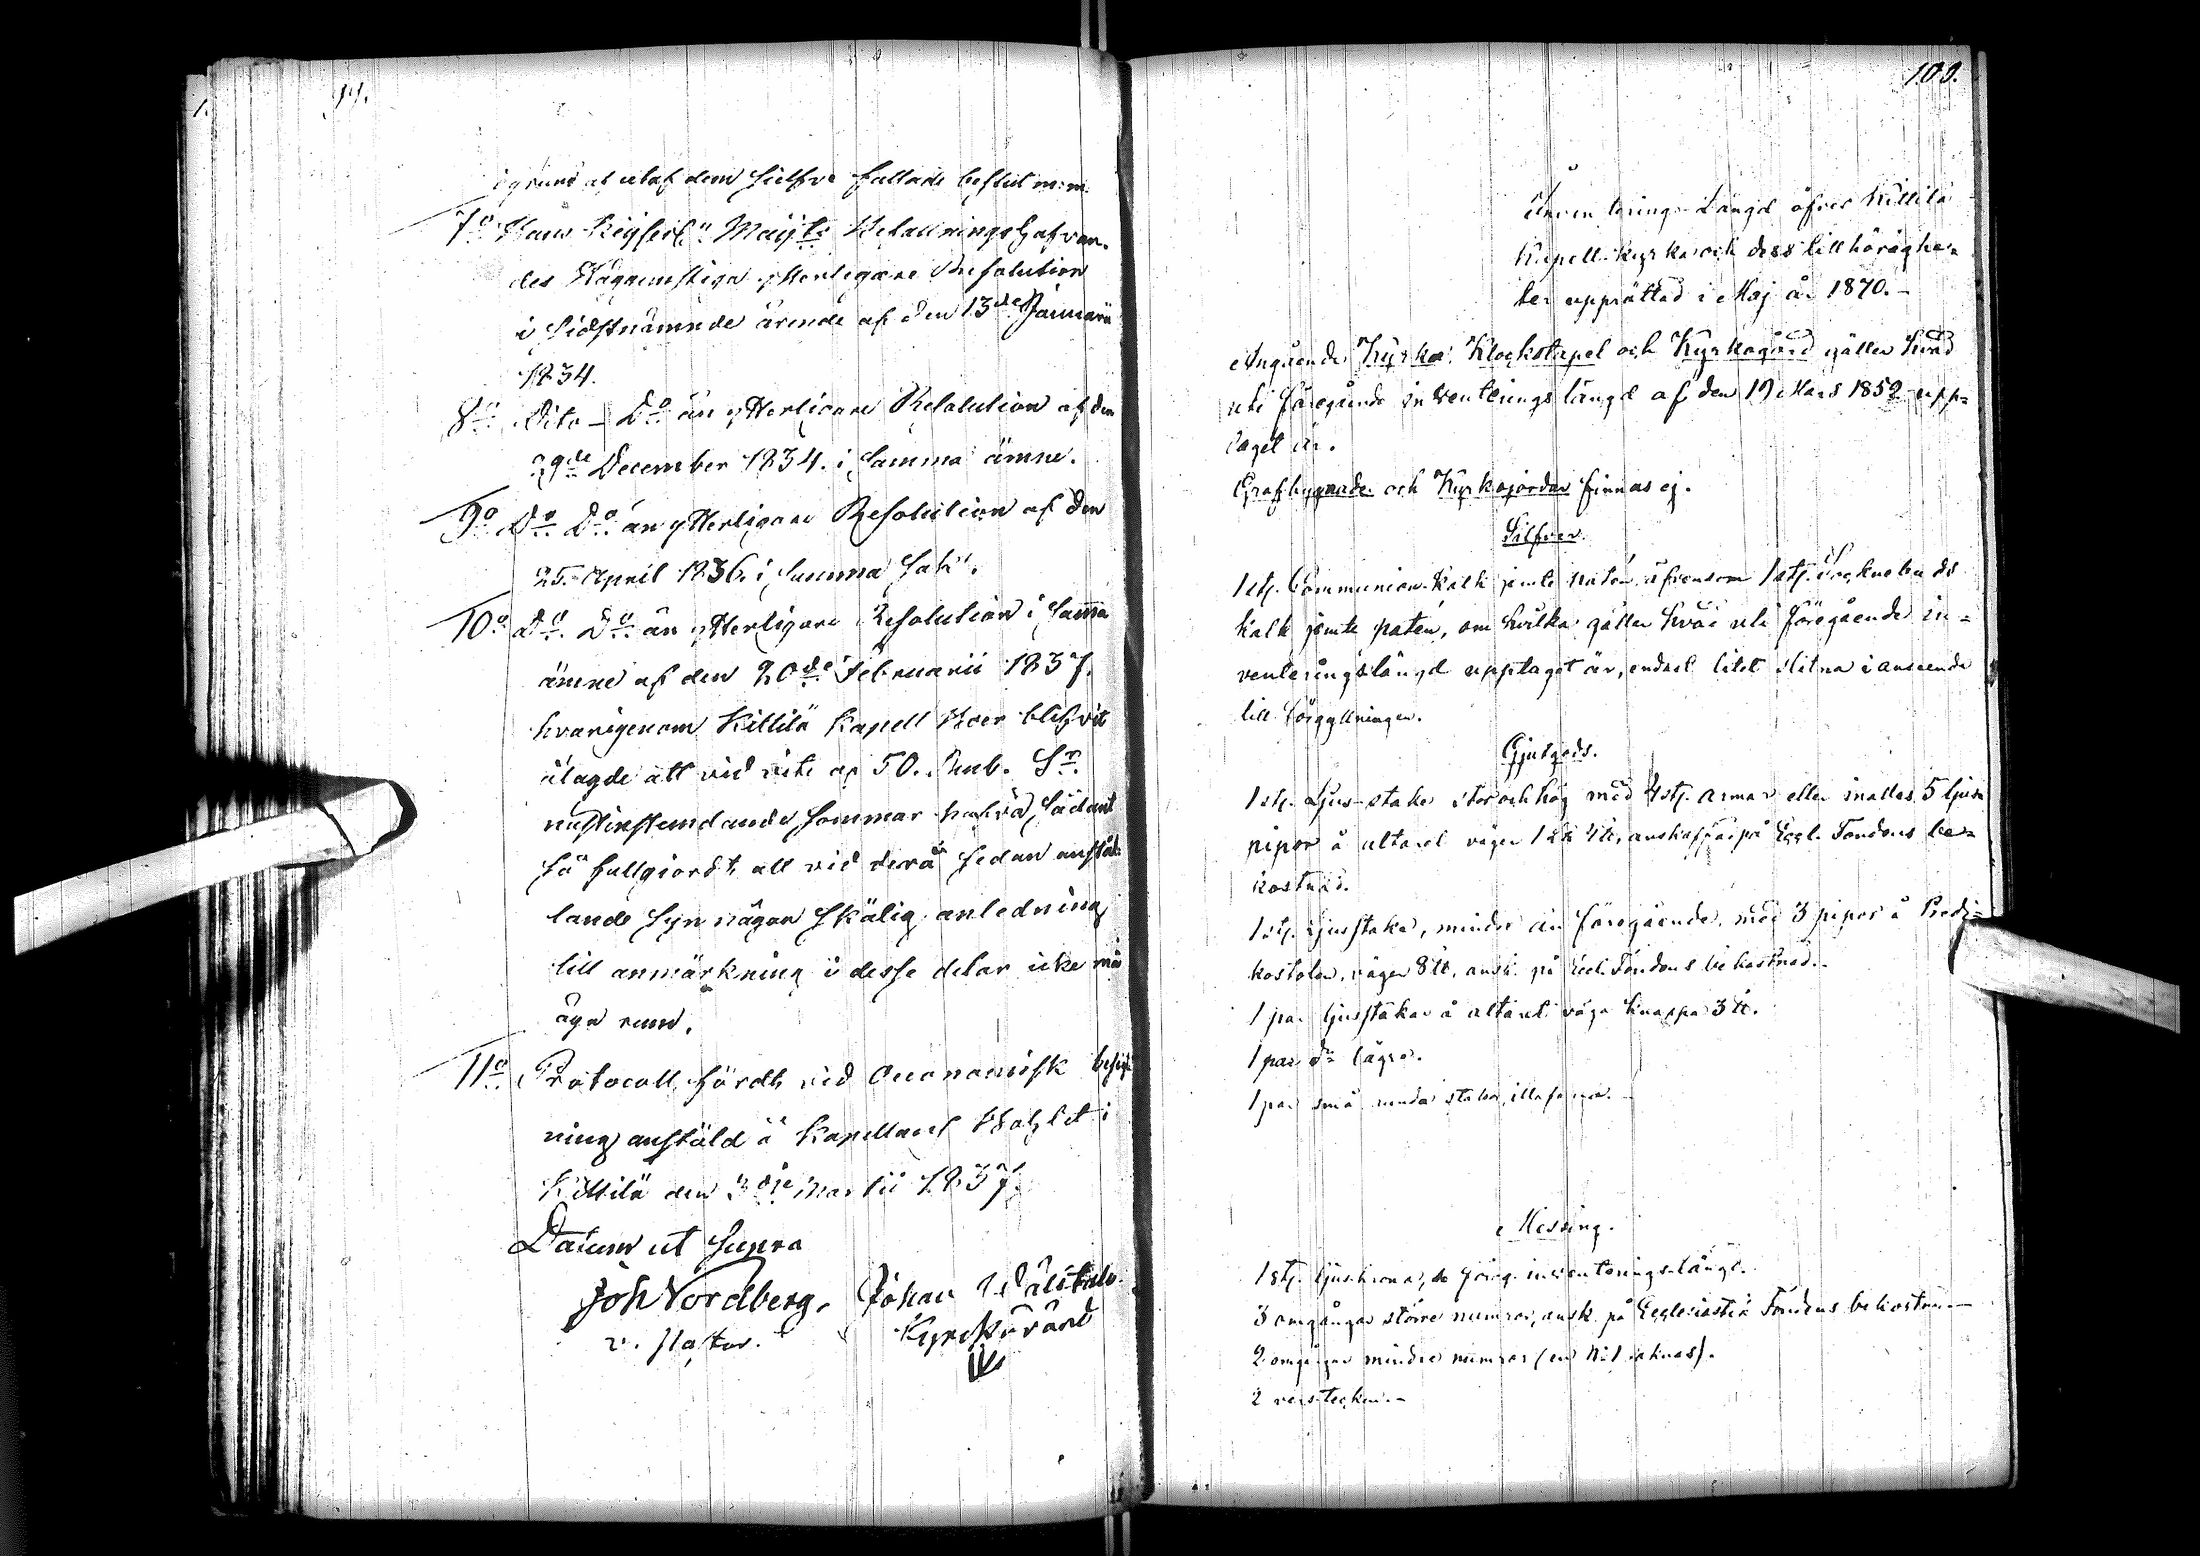 99.
i grund af utaf dem sielfve fattade beslut m:m:
7o Hans Keijserl:a Maij:ts Befallningshafvan-
des Höggunstiga ytterligare Resolution
i sidstnämnde ärende af den 13de Januarii
1834.
8o Dito - Do än ytterligare Resolution af den
29de December 1834. i samma ämne.
9o Do Do än ytterligare Resolution af den
25. April 1836. i samma sak.
10o Do Do än ytterligare Resolution i samma
ämne af den 20de Februarii 1837.
hvarigenom Kittilä Kapell Boer blifvit
ålagde att vid vite af 50. Rub. Sr.
nästinstundande sommar hafva sådant
så fullgiordt, att vid derå sedan anstäl-
lande syn någon skälig anledning
till anmärkning i desse delar icke må
äga rum.
11o Protocoll, fördt vid Oeconomisk besigt-
ning anställd å Kapellans Bohlet i
Kittilä den 3die Martii 1837.
Datum ut supra
Joh Nordberg. Johan
v. Pastor. Kyrckovärd
100.
Inventerings Längd öfver Kittilä
Kapell kyrka och dess tillhörighe-
ter upprättad i Maj år 1870.-
Angående Kyrka, Klockstapel och Kyrkogård gäller hvad
uti föregående inventeringslängd af den 19 Mars 1852 upp-
taget är.
Grafbyggnader och Kyrkojordar finnas ej.
Silfver.
1 stj. Communion-Kalk jemte patén, äfvensom 1 stj. Socknebuds
kalk jemte patén, om hvilka gäller hvad uti föregående in-
venteringslängd upptaget är, endast litet slitna i anseende
till förgyllningen.
Gjutgods.
1 stj. Ljus-stake, stor och hög med 4 stj. armar eller inalles 5 ljus
pipor å altaret väger 1 L℔ 4 ℔, anskaffad på Eccl. Fondens be-
kostnad.
1 stj. ljusstake, mindre än föregående, med 3 pipor å Predi-
kostolen, väger 8 ℔, ansk. på Eccl. Fondens bekostnad.-
1 par ljusstakar å altaret väga knappa 3 ℔.
1 par do lägre.
1 par små runda stakar, illa farna.
Messing.
1 stj. ljuskrona, se föreg. inventeringslängd.
3 omgångar större numror, ansk. på Ecclesiastik Fondens bekostn.-
2 omgångar mindre numror (en No 1 saknas).
2 verstecken.-